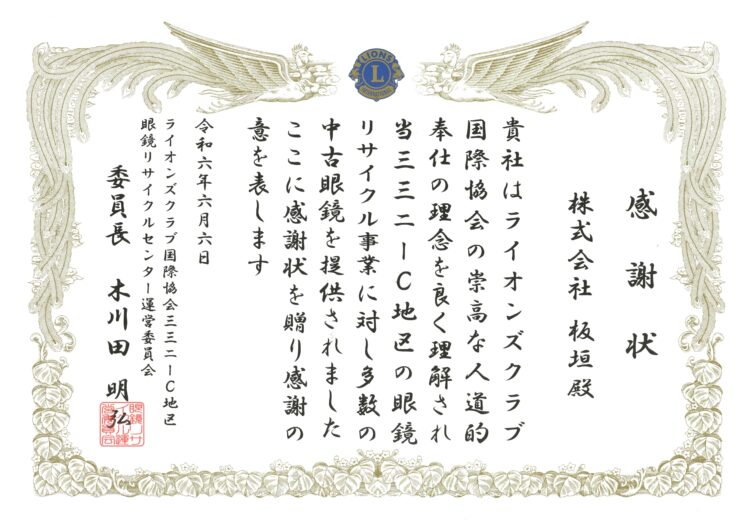 感謝状
株式会社 板垣 殿
貴社はライオンズクラブ
国際協会の崇高な人道的
奉仕の理念を良く理解され
当三三二ーC地区の眼鏡
リサイクル事業に対し多数の
中古眼鏡を提供されました
ここに感謝状を贈り感謝の
意を表します
令和六年六月六日
ライオンズクラブ国際協会三三二ーC地区
眼鏡リサイクルセンター運営委員会
委員長 木川田 明弘
LIONS
L
INTERNATIONAL